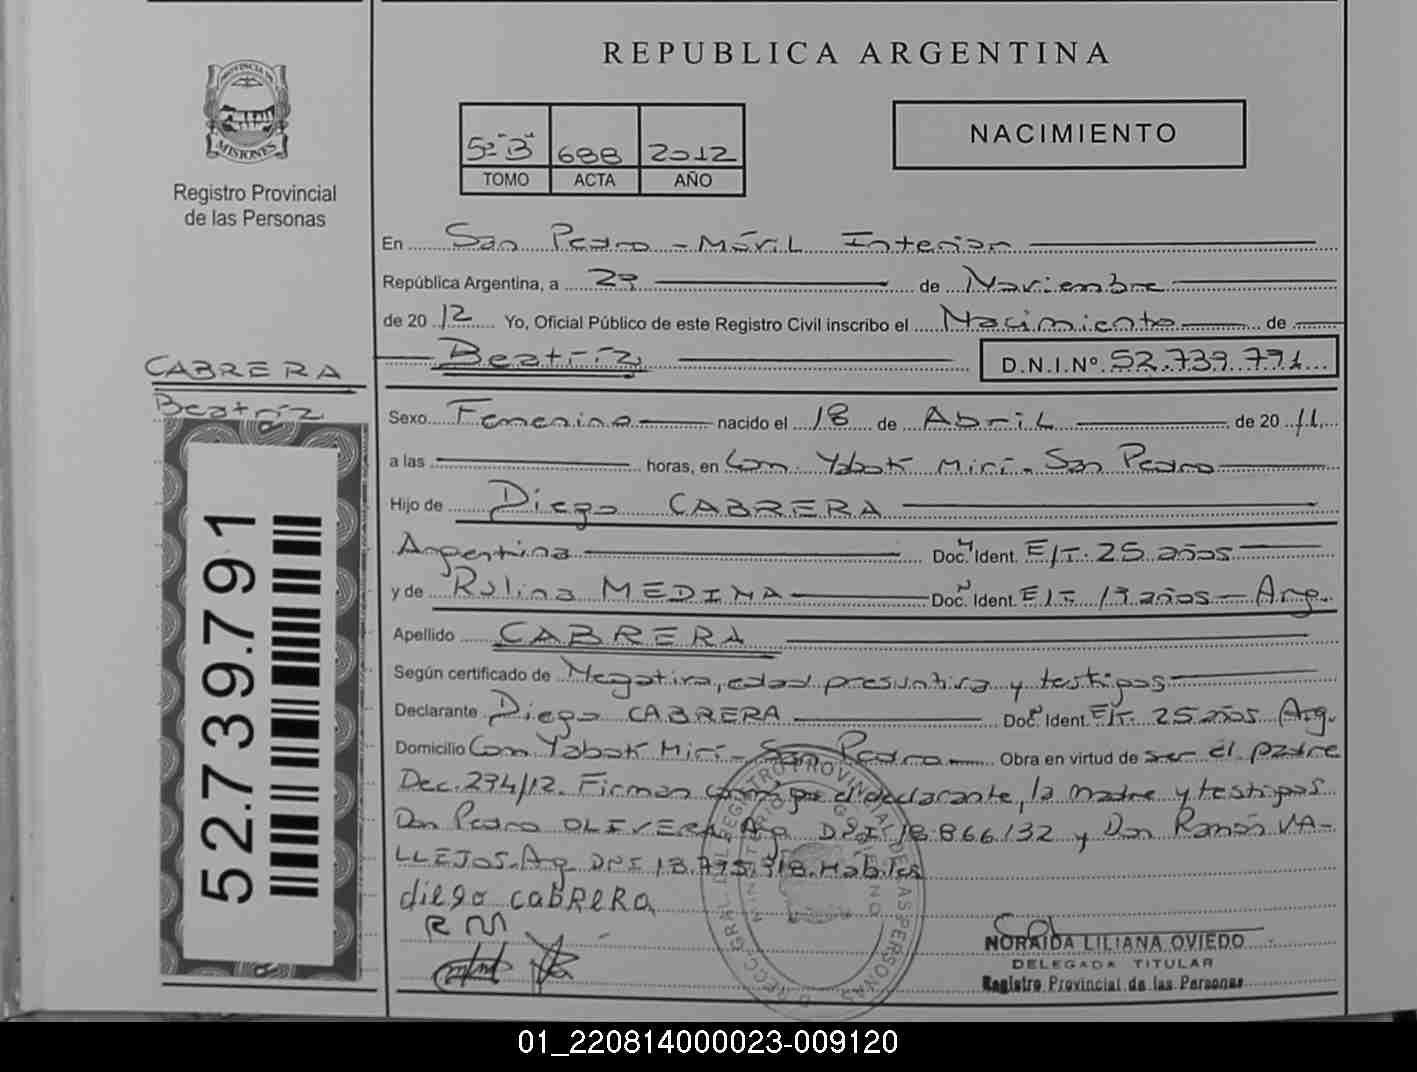 REPUBLICA ARGENTINA
PROVINCIA DE
MISIONES
Registro Provincial
de las Personas
5º "B" 688 2012
TOMO ACTA AÑO
NACIMIENTO
En San Pedro - Móvil Interior
República Argentina, a 29 de Noviembre
de 2012 Yo, Oficial Público de este Registro Civil inscribo el Nacimiento de
Beatríz D.N.I.Nº 52.739.791
CABRERA
Beatríz
52.739.791
Sexo Femenino nacido el 18 de Abril de 2011
a las horas, en Com. Yabotí Mirí - San Pedro
Hijo de Diego CABRERA
Argentina Doc. Ident. E/T. 25 años
y de Rulina MEDINA Doc. Ident. E/T. 19 años - Arg.
Apellido CABRERA
Según certificado de Negativa, edad presuntiva y testigos
Declarante Diego CABRERA Doc. Ident. E/T. 25 años Arg.
Domicilio Com Yabotí Mirí - San Pedro Obra en virtud de ser el padre
Dec. 294/12. Firman el declarante, la madre y testigos
Don Pedro OLIVERA Arg. DNI 18.866.132 y Don Ramón VA-
LLEJOS. Arg. DNI 18.795.918. Hábiles
diego cabRERA
R M
NORAIDA LILIANA OVIEDO
DELEGADA TITULAR
Registro Provincial de las Personas
01_220814000023-009120